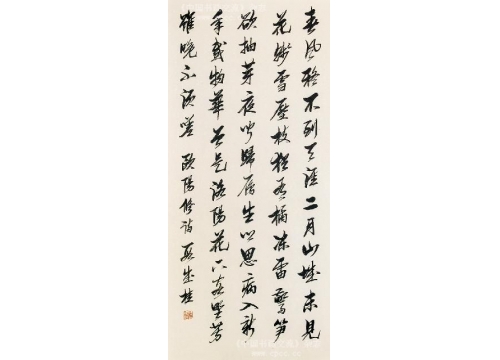 春風疑不到天涯二月山城未見
花殘雪壓枝猶有橘凍雷驚笋
欲抽芽夜聞歸雁生鄉思病入新
年感物華曾是洛陽花下客野芳
雖晚不須嗟 歐陽修詩 成桂